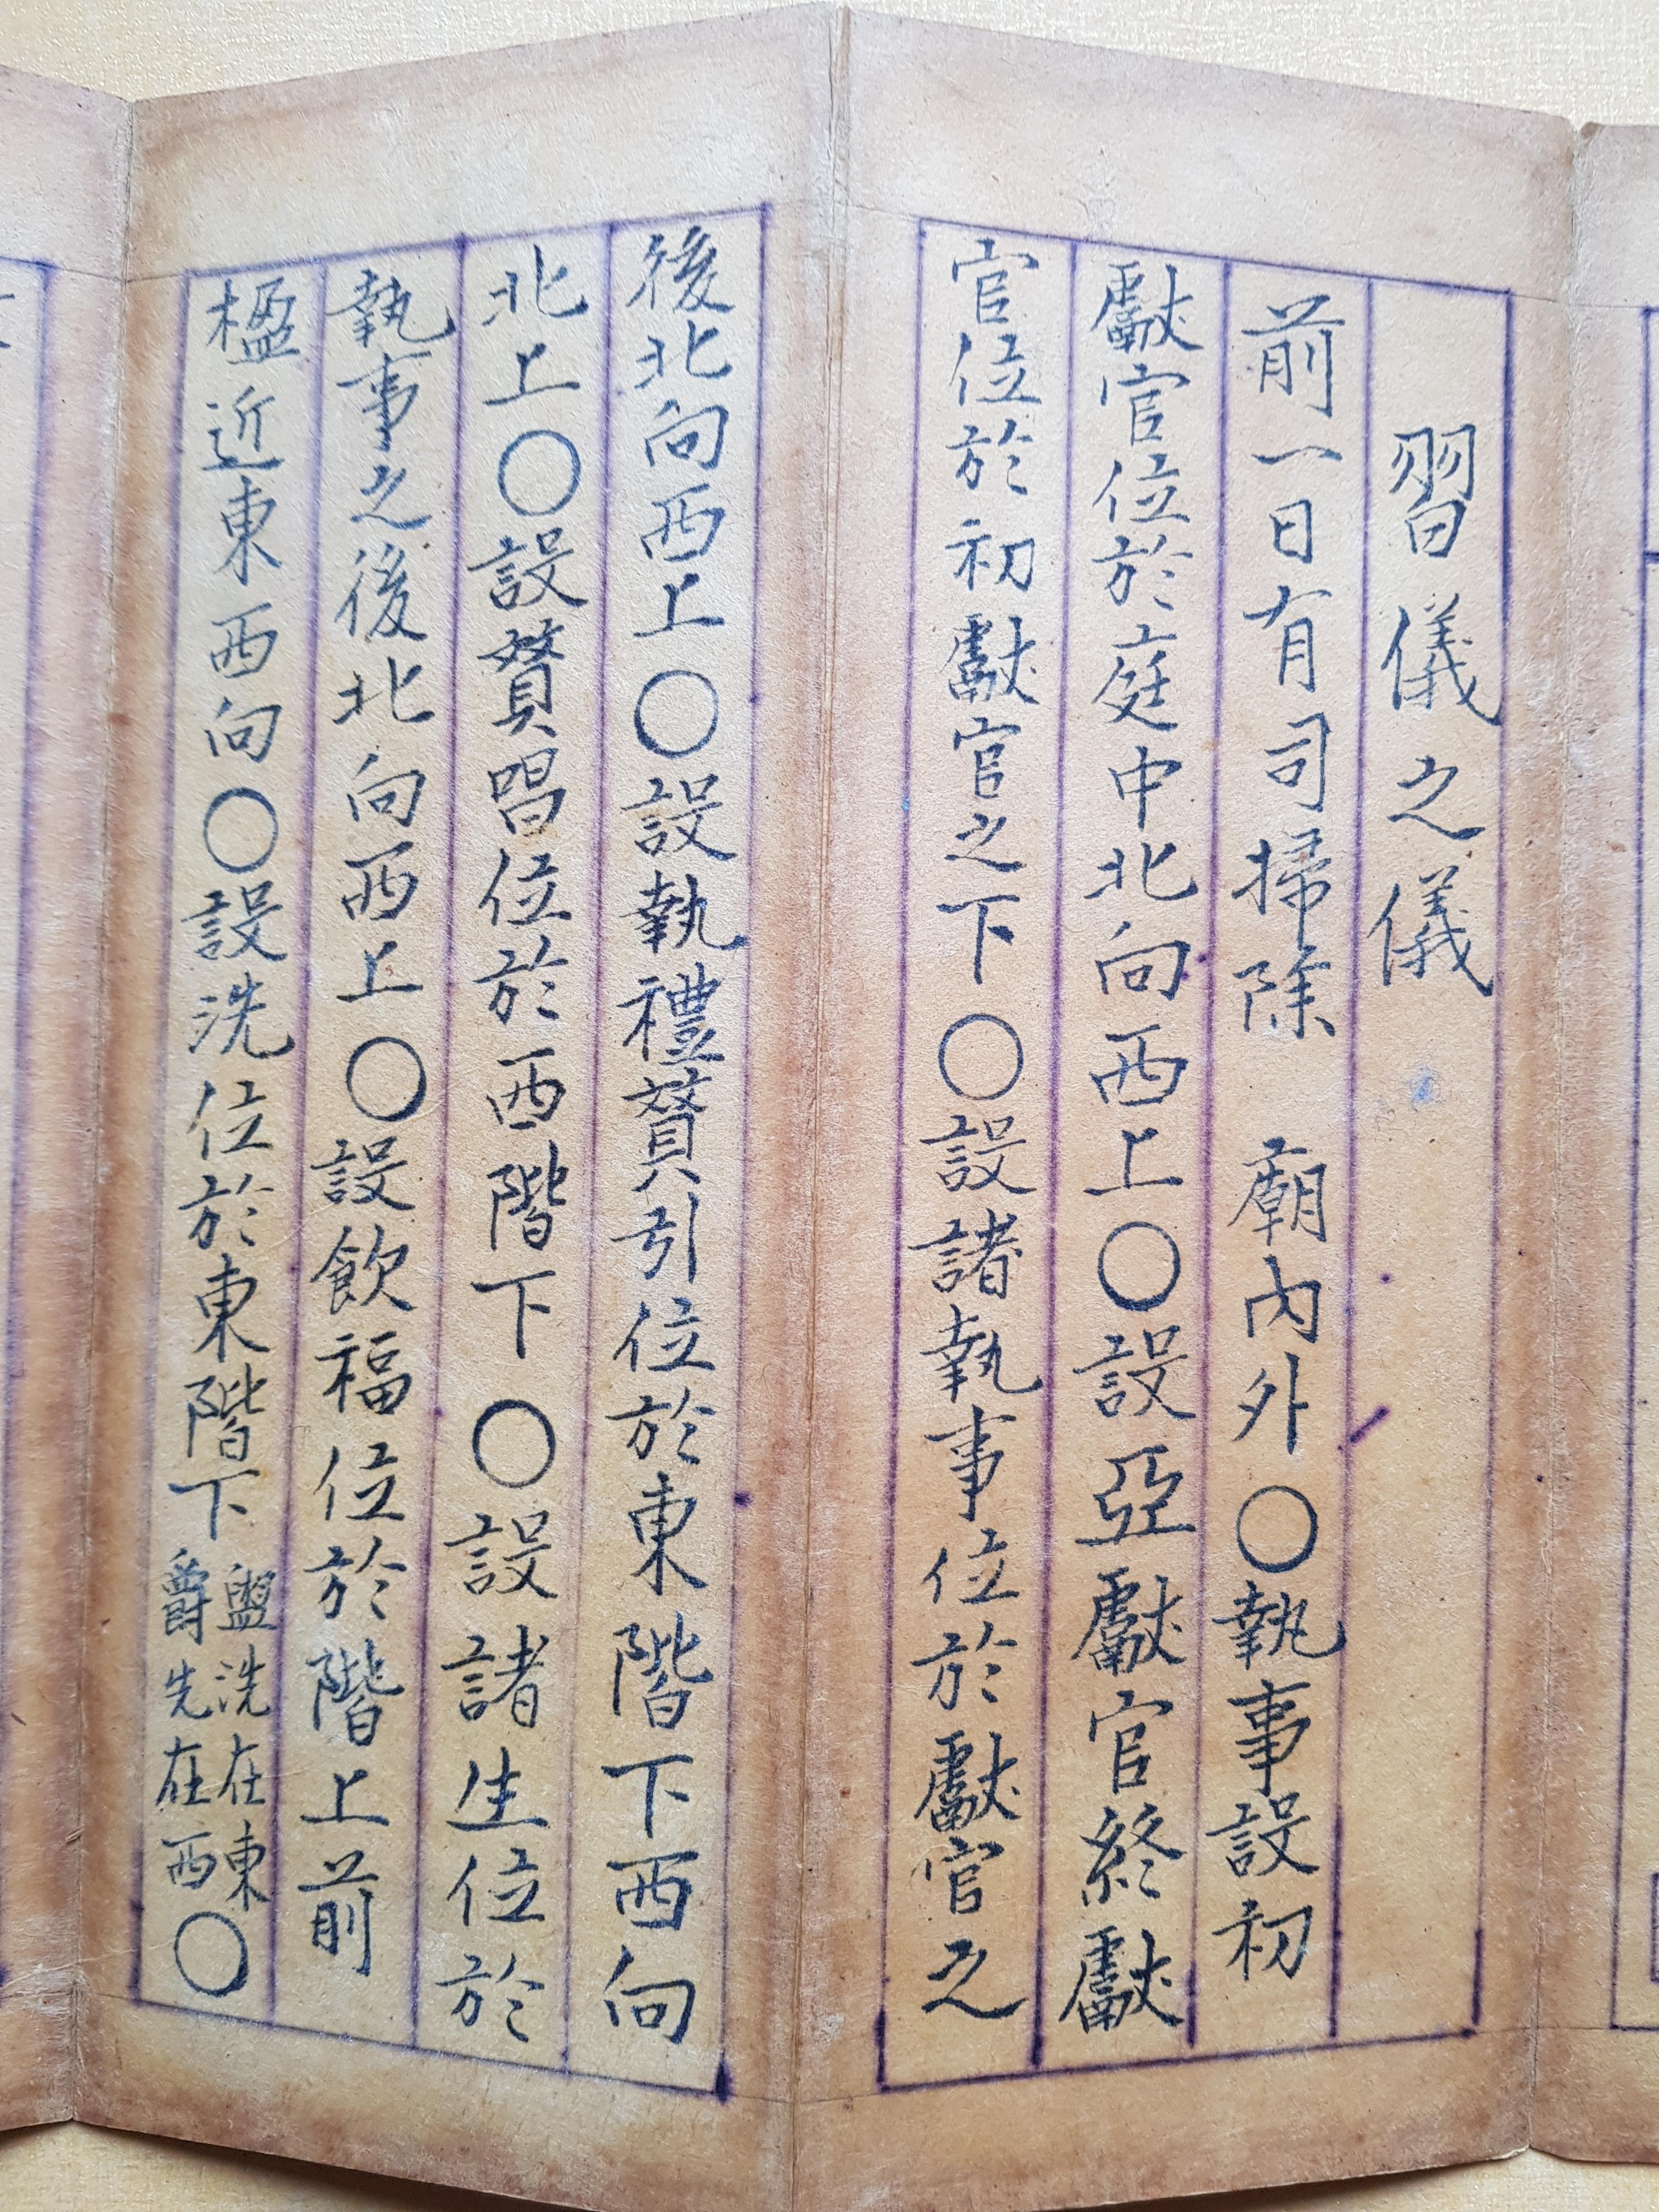 習儀之儀
前一日有司掃除 廟內外〇執事設初
獻官位於庭中北向西上〇設亞獻官終獻
官位於初獻官之下〇設諸執事位於獻官之
後北向西上〇設執禮賛引位於東階下西向
北上〇設賛唱位於西階下〇設諸生位於
執事之後北向西上〇設飮福位於階上前
楹近東西向〇設洗位於東階下
盥洗在東
爵先在西
〇